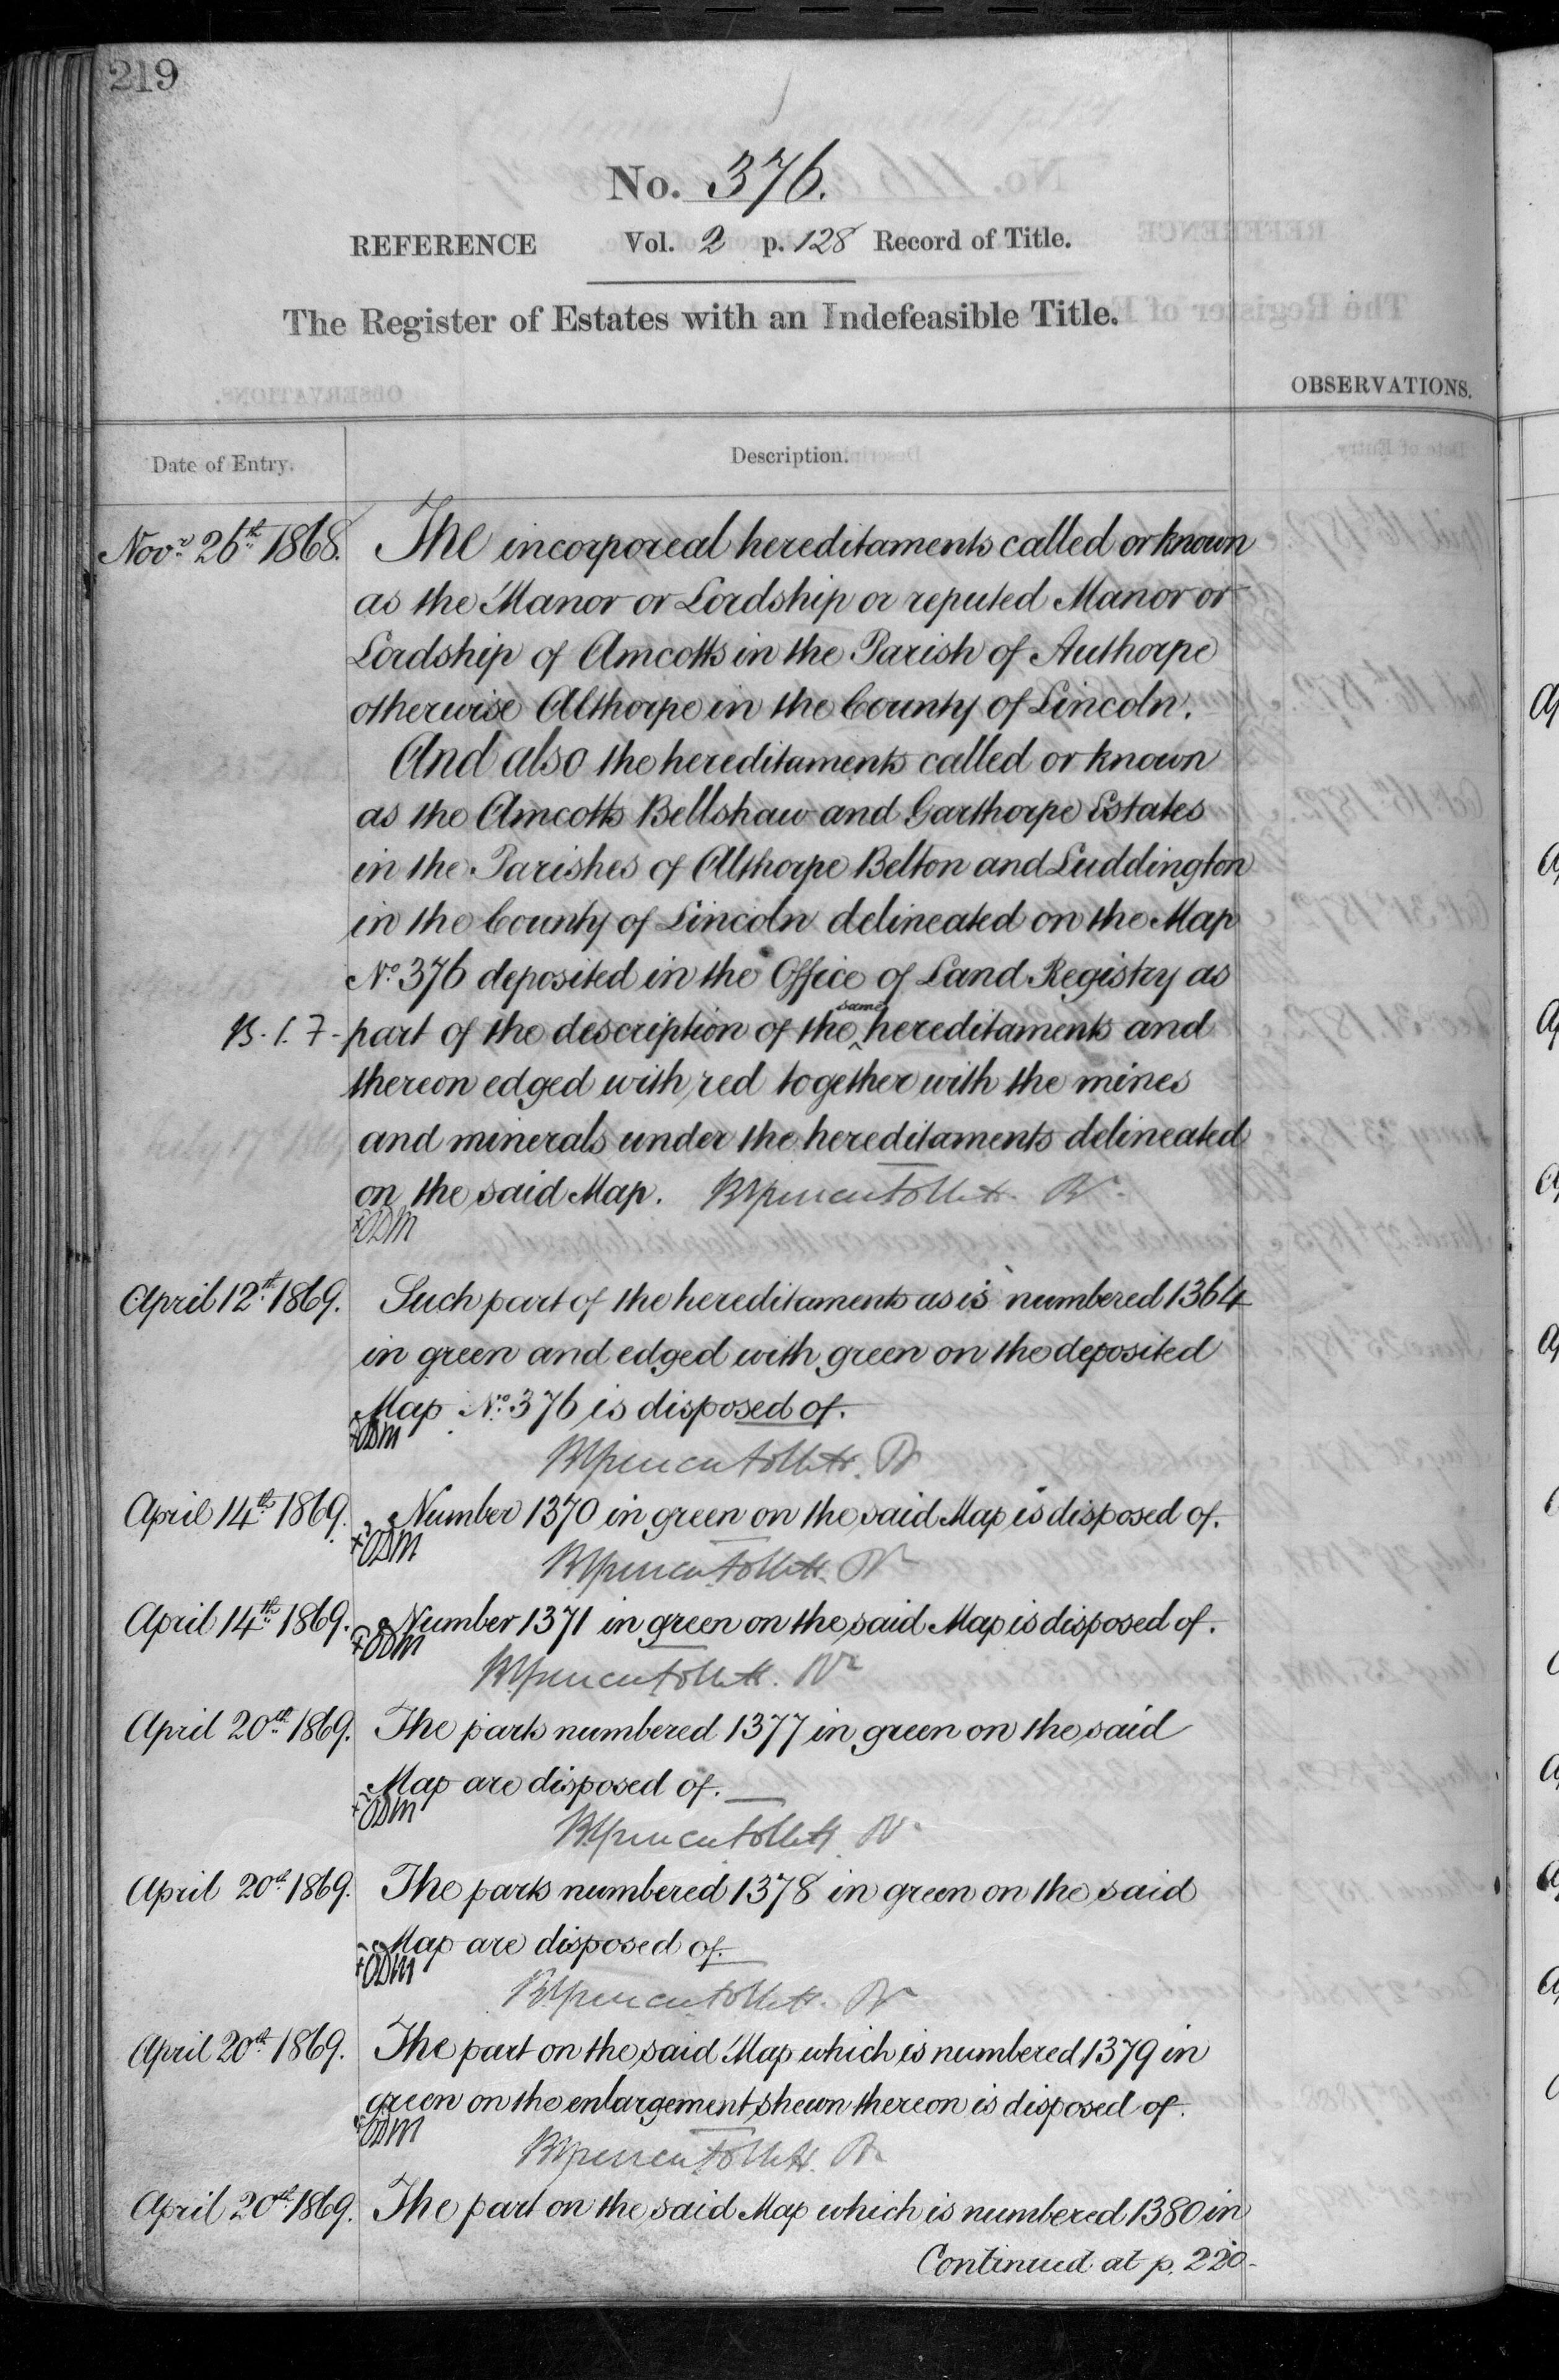 219
No. 376.
REFERENCE Vol. 2 p. 128 Record of Title.
The Register of Estates with an Indefeasible Title.
OBSERVATIONS.
Date of Entry. Description.
Novr. 26th 1868. The incorporeal hereditaments called or known
as the Manor or Lordship or reputed Manor or
Lordship of Amcotts in the Parish of Authorpe
otherwise Althorpe in the County of Lincoln.
And also the hereditaments called or known
as the Amcotts Bellshaw and Garthorpe Estates
in the Parishes of Althorpe Belton and Luddington
in the County of Lincoln delineated on the Map
No. 376 deposited in the Office of Land Registry as
part of the description of the same hereditaments and
thereon edged with red together with the mines
and minerals under the hereditaments delineated
on the said Map.
ODM
April 12th 1869. Such part of the hereditaments as is numbered 1364
in green and edged with green on the deposited
Map No. 376 is disposed of.
ODM
April 14th 1869. Number 1370 in green on the said Map is disposed of.
ODM
April 14th 1869. Number 1371 in green on the said Map is disposed of.
ODM
April 20th 1869. The parts numbered 1377 in green on the said
Map are disposed of.
ODM
April 20th 1869. The parts numbered 1378 in green on the said
Map are disposed of.
ODM
April 20th 1869. The part on the said Map which is numbered 1379 in
green on the enlargement shewn thereon is disposed of.
ODM
April 20th 1869. The part on the said Map which is numbered 1380 in
Continued at p. 220-